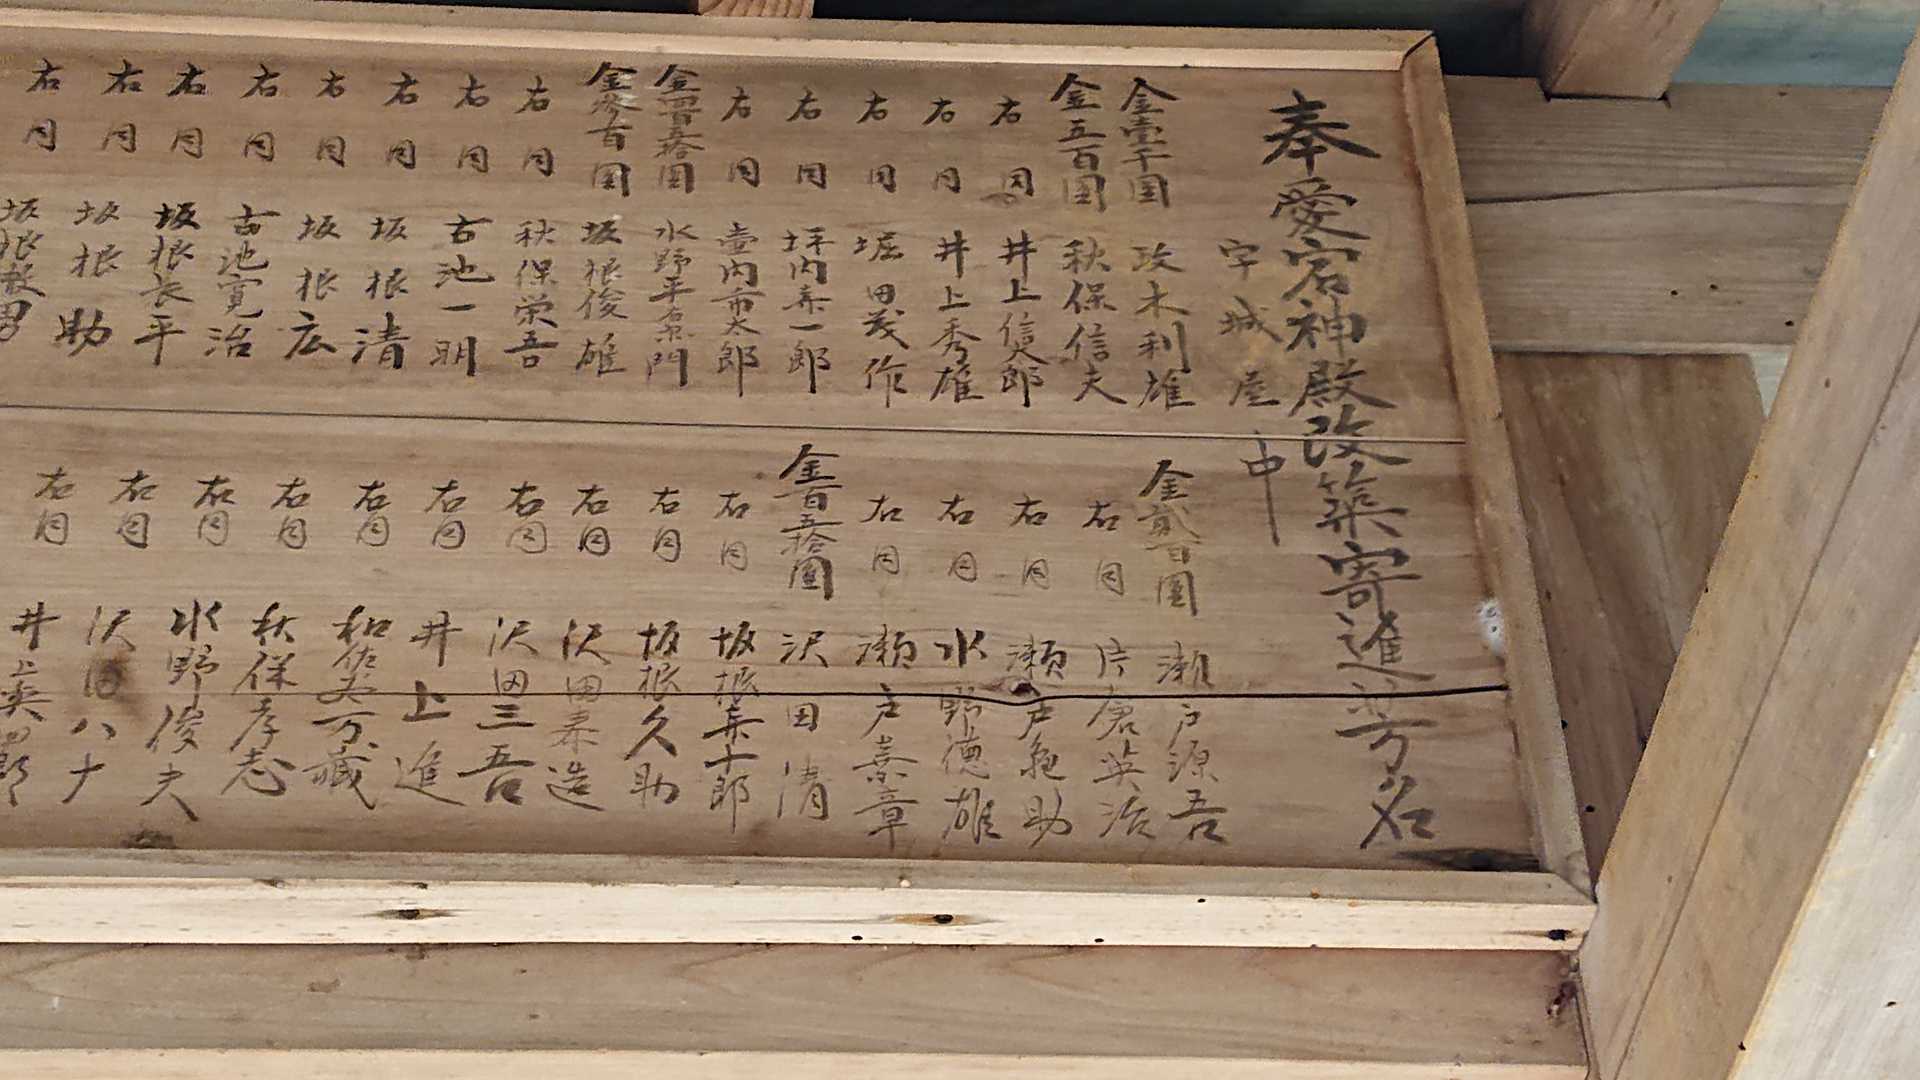 奉愛宕神殿改築寄進芳名
字城屋中
金壱千圓 政木利雄
金五百圓 秋保信夫
右同 井上信太郎
右同 井上秀雄
右同 堀田茂作
右同 坪内弄一郎
右同 壷内市太郎
金四百五拾圓 水野平右衛門
金参百圓 坂根俊雄
右同 秋保栄吾
右同 古池一明
右同 坂根清
右同 坂根広
右同 古池寛治
右同 坂根长平
右同 坂根助
右同 坂根敏男
金貳百圓 瀬戸源吾
右同 片倉英治
右同 瀬戸亀助
右同 水野德雄
右同 瀬戸嘉章
金百五拾圓 沢田清
右同 坂根弄十郎
右同 坂根久助
右同 沢田泰造
右同 沢田三吾
右同 井上進
右同 和佐谷万蔵
右同 秋保孝志
右同 水野俊夫
右同 沢田八十
右同 井上英四郎